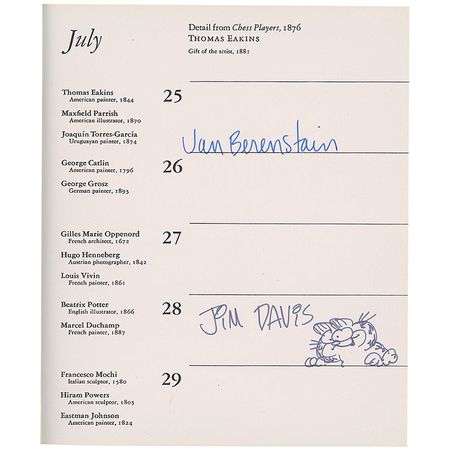 July
Detail from Chess Players, 1876
THOMAS EAKINS
Gift of the artist, 1881
Thomas Eakins
American painter, 1844
25
Maxfield Parrish
American illustrator, 1870
Joaquín Torres-García
Uruguayan painter, 1874
Jan Berenstain
George Catlin
American painter, 1796
26
George Grosz
German painter, 1893
Gilles Marie Oppenord
French architect, 1672
27
Hugo Henneberg
Austrian photographer, 1842
Louis Vivin
French painter, 1861
Beatrix Potter
English illustrator, 1866
28
JIM DAVIS
Marcel Duchamp
French painter, 1887
Francesco Mochi
Italian sculptor, 1580
29
Hiram Powers
American sculptor, 1805
Eastman Johnson
American painter, 1824